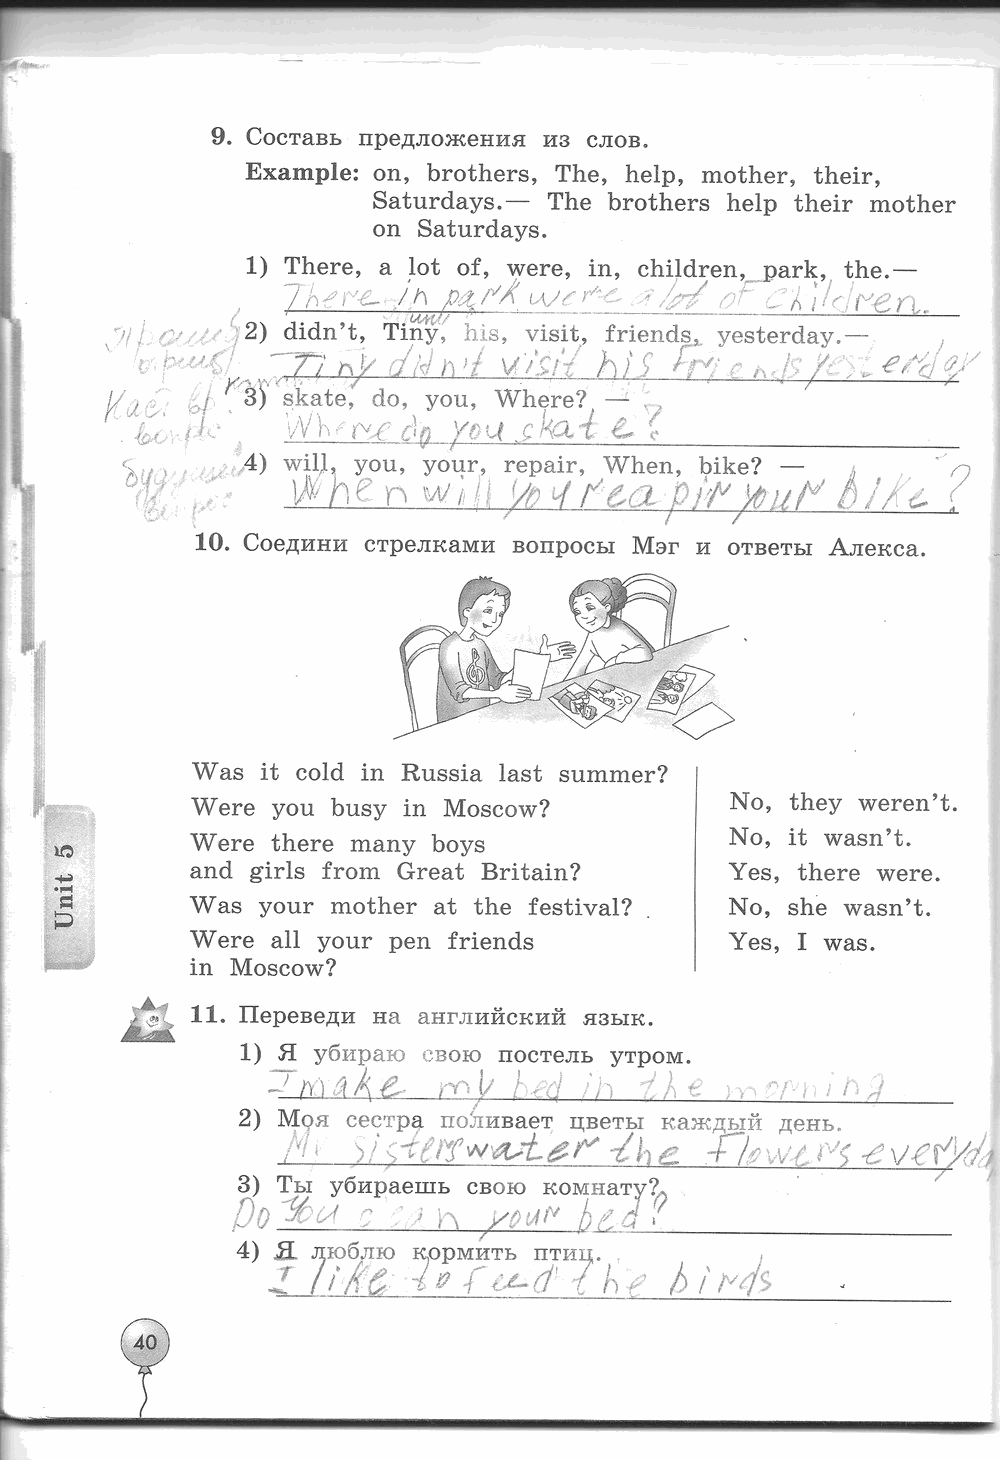 9. Составь предложения из слов.
Example: on, brothers, The, help, mother, their,
Saturdays.— The brothers help their mother
on Saturdays.
1) There, a lot of, were, in, children, park, the.—
There in park were a lot of children.
2) didn't, Tiny, his, visit, friends, yesterday.—
Tiny didn't visit his friends yesterday
3) skate, do, you, Where? —
Where do you skate?
4) will, you, your, repair, When, bike? —
When will you reapir your bike?
10. Соедини стрелками вопросы Мэг и ответы Алекса.
Was it cold in Russia last summer?
Were you busy in Moscow?
Were there many boys
and girls from Great Britain?
Was your mother at the festival?
Were all your pen friends
in Moscow?
No, they weren't.
No, it wasn't.
Yes, there were.
No, she wasn't.
Yes, I was.
Unit 5
11. Переведи на английский язык.
1) Я убираю свою постель утром.
I make my bed in the morning
2) Моя сестра поливает цветы каждый день.
My sisters water the flowers everyday
3) Ты убираешь свою комнату?
Do you clean your bed?
4) Я люблю кормить птиц.
I like to feed the birds
40